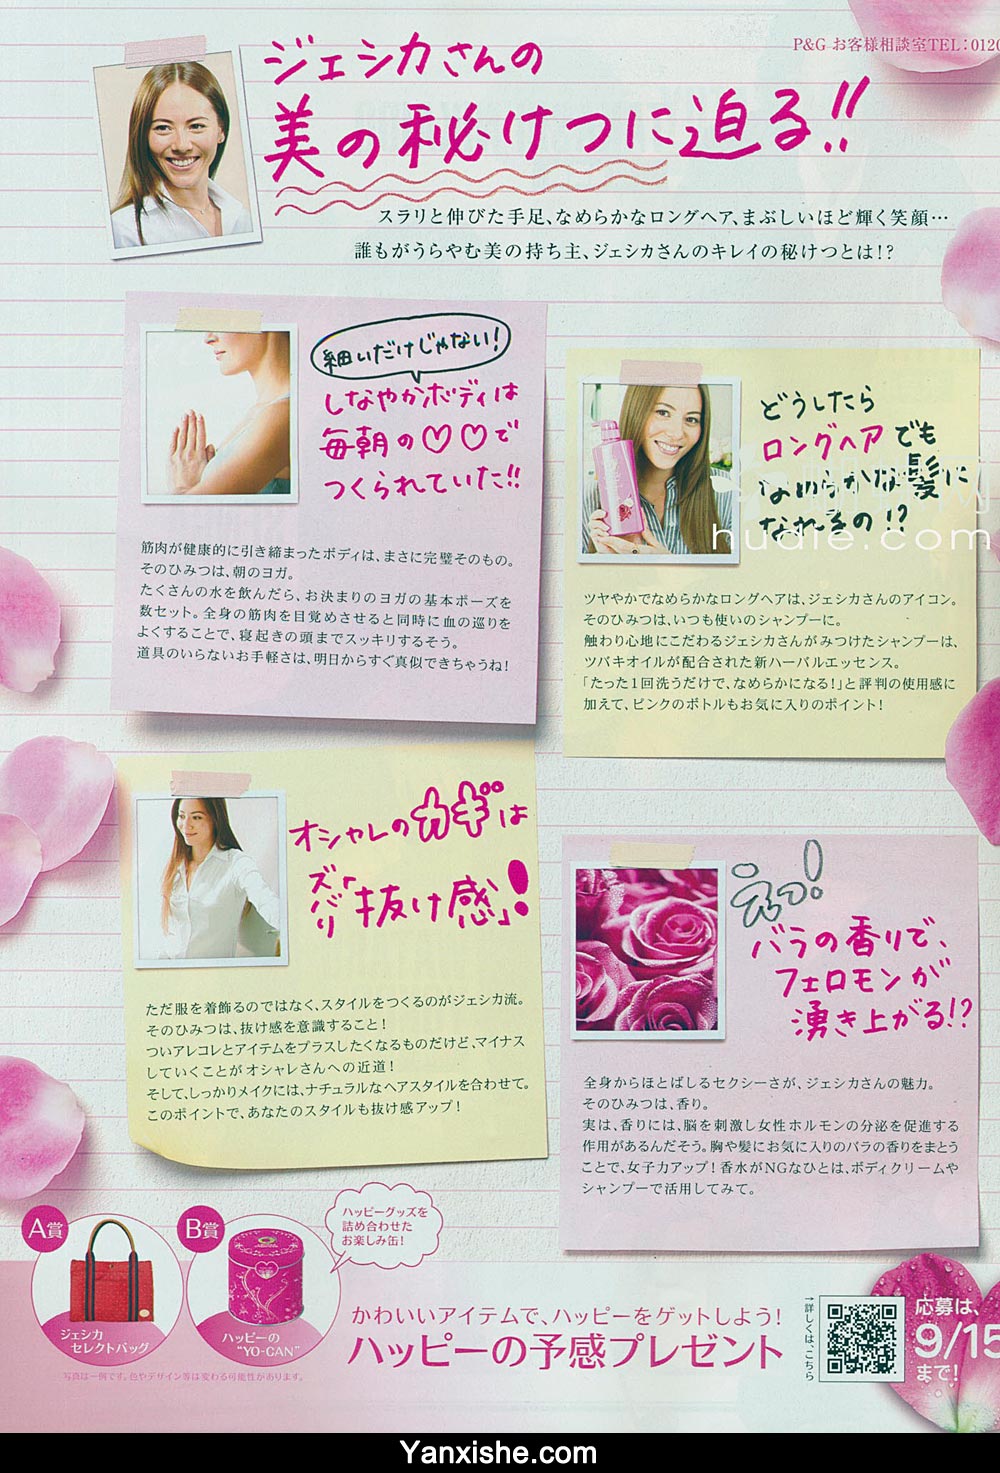 P&G お客様相談室TEL:0120
ジェシカさんの
美の秘けつに迫る!!
スラリと伸びた手足、なめらかなロングヘア、まぶしいほど輝く笑顔…
誰もがうらやむ美の持ち主、ジェシカさんのキレイの秘けつとは!?
細いだけじゃない!
しなやかボディは
毎朝の♡♡で
つくられていた!!
筋肉が健康的に引き締まったボディは、まさに完璧そのもの。
そのひみつは、朝のヨガ。
たくさんの水を飲んだら、お決まりのヨガの基本ポーズを
数セット。全身の筋肉を目覚めさせると同時に血の巡りを
よくすることで、寝起きの頭までスッキリするそう。
道具のいらないお手軽さは、明日からすぐ真似できちゃうね!
どうしたら
ロングヘアでも
なめらかな髪に
なれるの!?
hudie.com
ツヤやかでなめらかなロングヘアは、ジェシカさんのアイコン。
そのひみつは、いつも使いのシャンプーに。
触わり心地にこだわるジェシカさんがみつけたシャンプーは、
ツバキオイルが配合された新ハーバルエッセンス。
「たった1回洗うだけで、なめらかになる!」と評判の使用感に
加えて、ピンクのボトルもお気に入りのポイント!
オシャレのカギは
ズバリ「抜け感」!
ただ服を着飾るのではなく、スタイルをつくるのがジェシカ流。
そのひみつは、抜け感を意識すること!
ついアレコレとアイテムをプラスしたくなるものだけど、マイナス
していくことがオシャレさんへの近道!
そして、しっかりメイクには、ナチュラルなヘアスタイルを合わせて。
このポイントで、あなたのスタイルも抜け感アップ!
えっ!
バラの香りで、
フェロモンが
湧き上がる!?
全身からほとばしるセクシーさが、ジェシカさんの魅力。
そのひみつは、香り。
実は、香りには、脳を刺激し女性ホルモンの分泌を促進する
作用があるんだそう。胸や髪にお気に入りのバラの香りをまとう
ことで、女子力アップ!香水がNGなひとは、ボディクリームや
シャンプーで活用してみて。
A賞
ジェシカ
セレクトバッグ
B賞
ハッピーの
"YO-CAN"
ハッピーグッズを
詰め合わせた
お楽しみ缶!
写真は一例です。色やデザイン等は変わる可能性があります。
かわいいアイテムで、ハッピーをゲットしよう!
ハッピーの予感プレゼント
→詳しくは、こちら
応募は、
9/15
まで!
Yanxishe.com